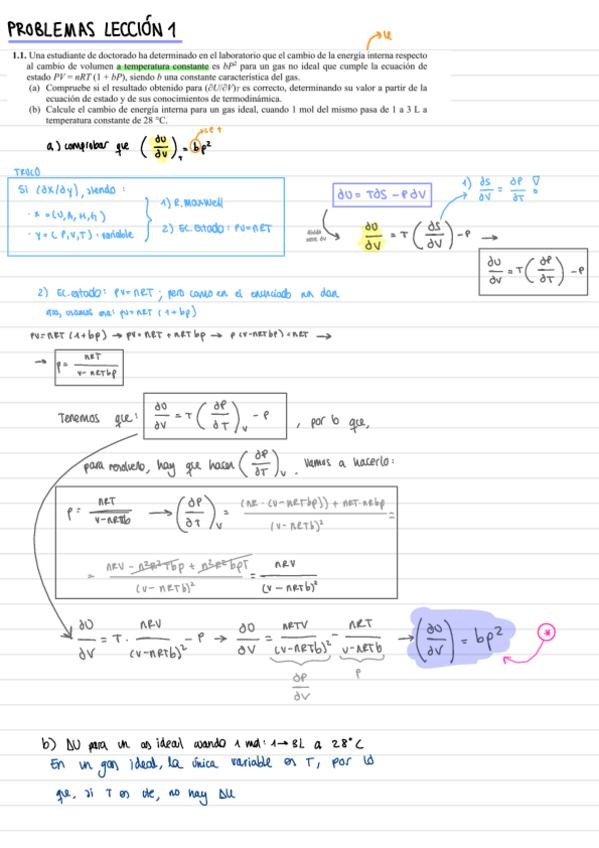 PROBLEMAS LECCIÓN 1
→ U
1.1. Una estudiante de doctorado ha determinado en el laboratorio que el cambio de la energía interna respecto
al cambio de volumen a temperatura constante es bP² para un gas no ideal que cumple la ecuación de
estado PV = nRT (1 + bP), siendo b una constante característica del gas.
(a) Compruebe si el resultado obtenido para (∂U/∂V)T es correcto, determinando su valor a partir de la
ecuación de estado y de sus conocimientos de termodinámica.
(b) Calcule el cambio de energía interna para un gas ideal, cuando 1 mol del mismo pasa de 1 a 3 L a
temperatura constante de 28 °C.
a) comprobar que (∂U/∂V)T = bp²
TRUCO
Si (∂x/∂y), siendo:
· x = (U, A, H, G)
· y = (P, V, T) · variable
1) R. Maxwell
2) Ec. Estado: PV = nRT
∂U = T∂S - P∂V
1) ∂S/∂V = ∂P/∂T
∂U/∂V = T (∂S/∂V) - P →
∂U/∂V = T (∂P/∂T) - P
2) Ec. estado: PV = nRT ; pero como en el enunciado nos dan
otra, usamos esa: PV = nRT (1+bp)
PV = nRT (1+bp) → PV = nRT + nRTbp → P(V-nRTb) = nRT →
→ P = nRT/V-nRTbp
Tenemos que: ∂U/∂V = T (∂P/∂T)V - P , por lo que,
para resolverlo, hay que hacer (∂P/∂T)V. Vamos a hacerlo:
P = nRT/V-nRTb → (∂P/∂T)V = (nR · (V-nRTbp)) + nRT·nRbp/(V-nRTb)² =
= nRV - n²R²Tbp + n²R²bpT/(V-nRTb)² = nRV/(V-nRTb)²
∂U/∂V = T · nRV/(V-nRTb)² - P → ∂U/∂V = nRTV/(V-nRTb)² - nRT/V-nRTb → (∂U/∂V) = bp² *
∂P/∂V P
b) ΔU para un gas ideal cuando 1 mol: 1→3L a 28°C
En un gas ideal, la única variable es T, por lo
que, si T es cte, no hay ΔU